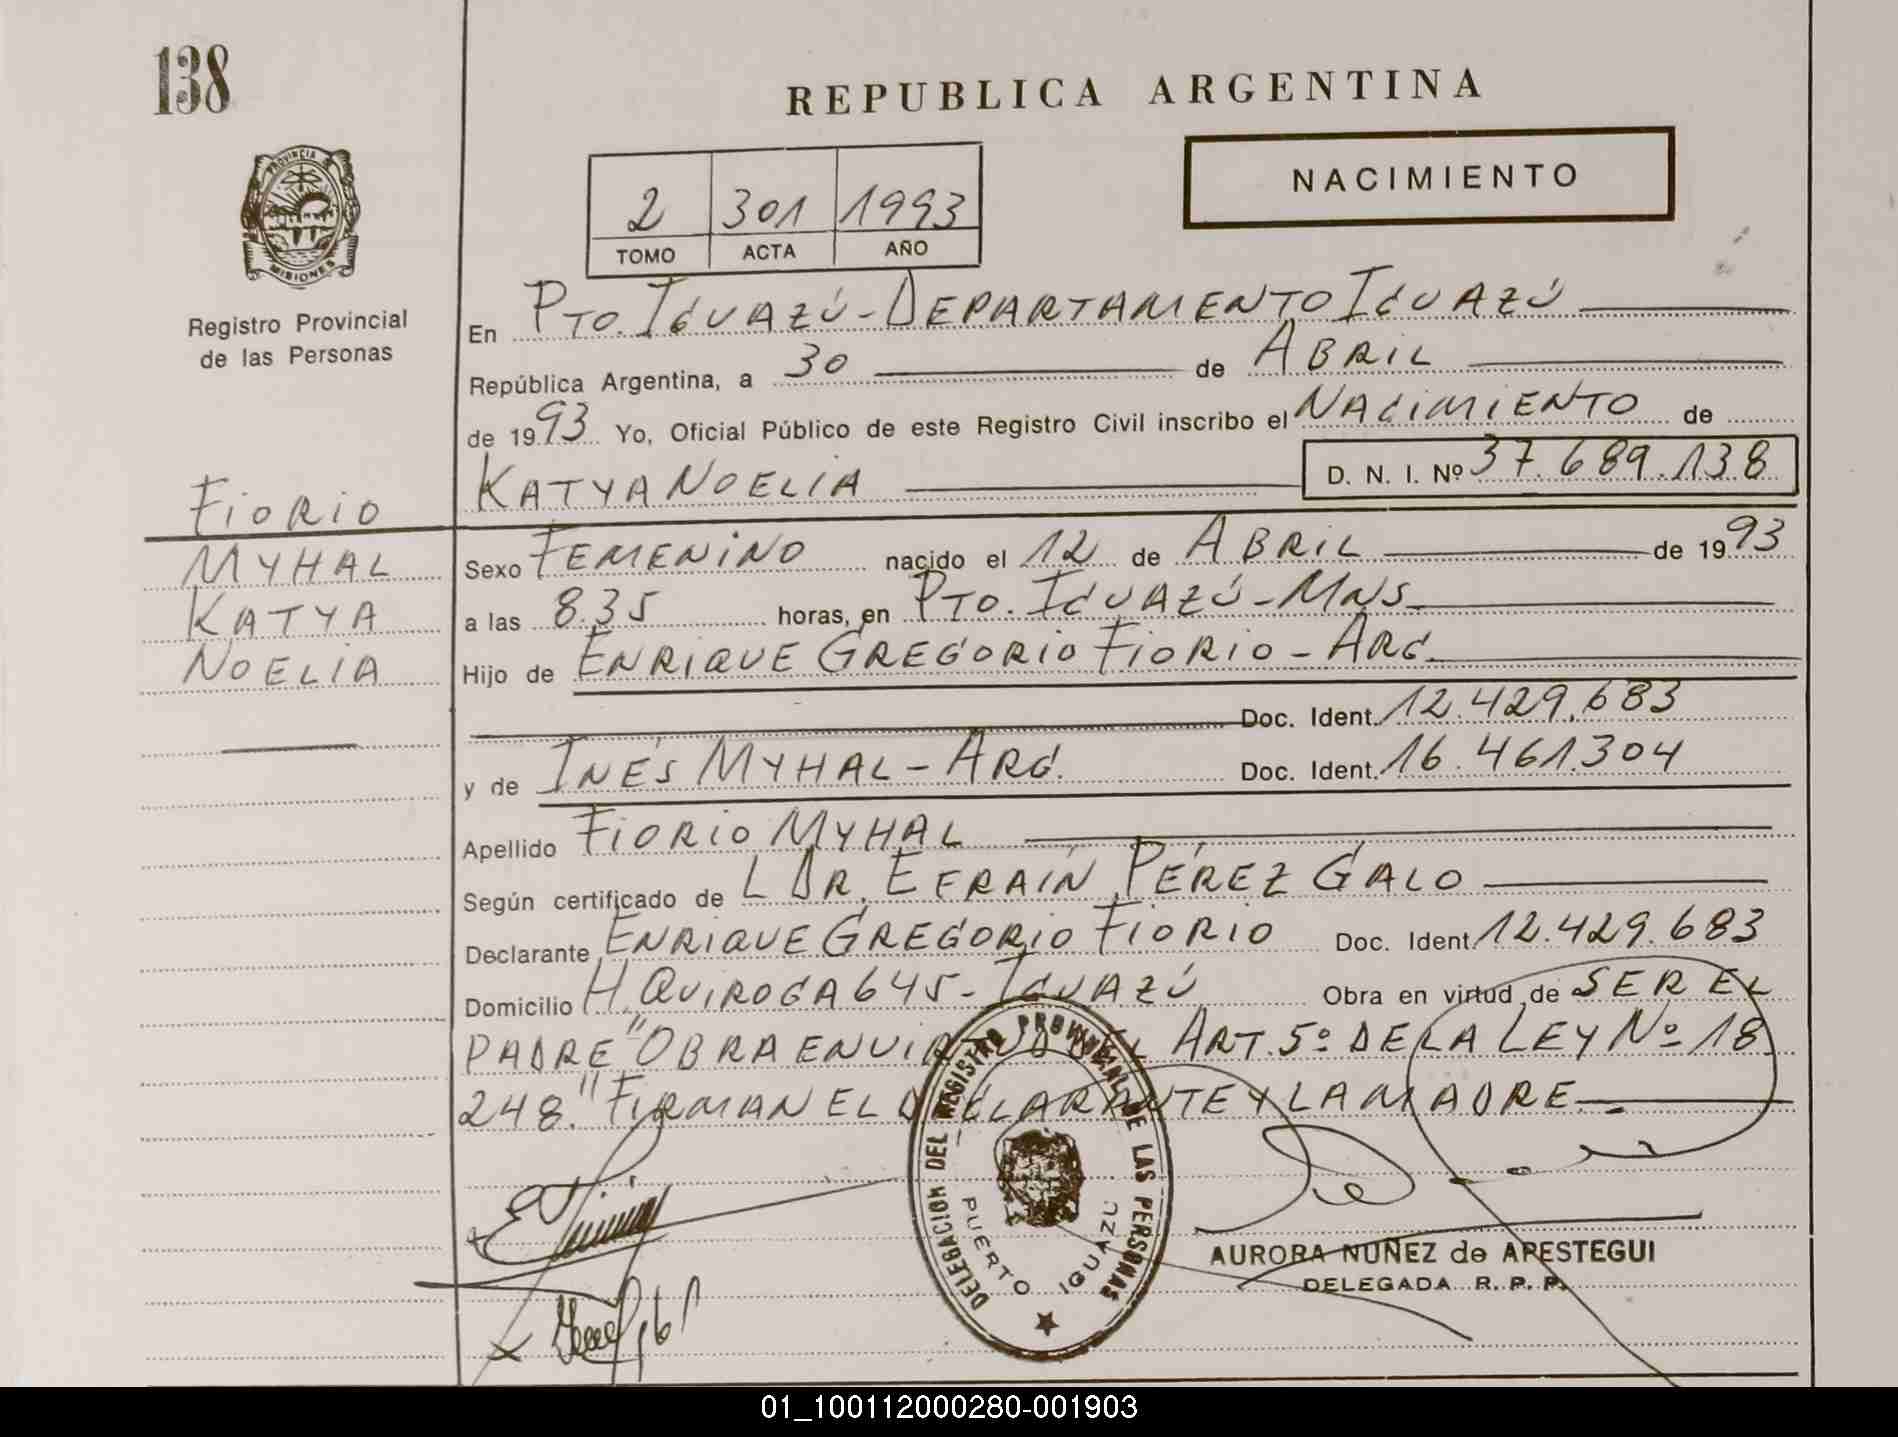 138
REPUBLICA ARGENTINA
PROVINCIA DE
MISIONES
Registro Provincial
de las Personas
NACIMIENTO
2 301 1993
TOMO ACTA AÑO
En Pto. Iguazú - Departamento Iguazú
República Argentina, a 30 de Abril
de 1993 Yo, Oficial Público de este Registro Civil inscribo el Nacimiento de
Katya Noelia D. N. I. Nº 37.689.138
Fiorio
Myhal
Katya
Noelia
Sexo Femenino nacido el 12 de Abril de 1993
a las 8.35 horas, en Pto. Iguazú - Mns.
Hijo de Enrique Gregorio Fiorio - Arg.
Doc. Ident. 12.429.683
y de Inés Myhal - Arg. Doc. Ident. 16.461.304
Apellido Fiorio Myhal
Según certificado de L Dr. Efraín Pérez Galo
Declarante Enrique Gregorio Fiorio Doc. Ident 12.429.683
Domicilio H. Quiroga 645 - Iguazú Obra en virtud de ser el
padre "Obra en virtud del Art. 5º de la Ley Nº 18
248." Firman el declarante y la madre.
DELEGACION DEL REGISTRO PROVINCIAL DE LAS PERSONAS
PUERTO IGUAZU
AURORA NUÑEZ de APESTEGUI
DELEGADA R. P. P.
01_100112000280-001903